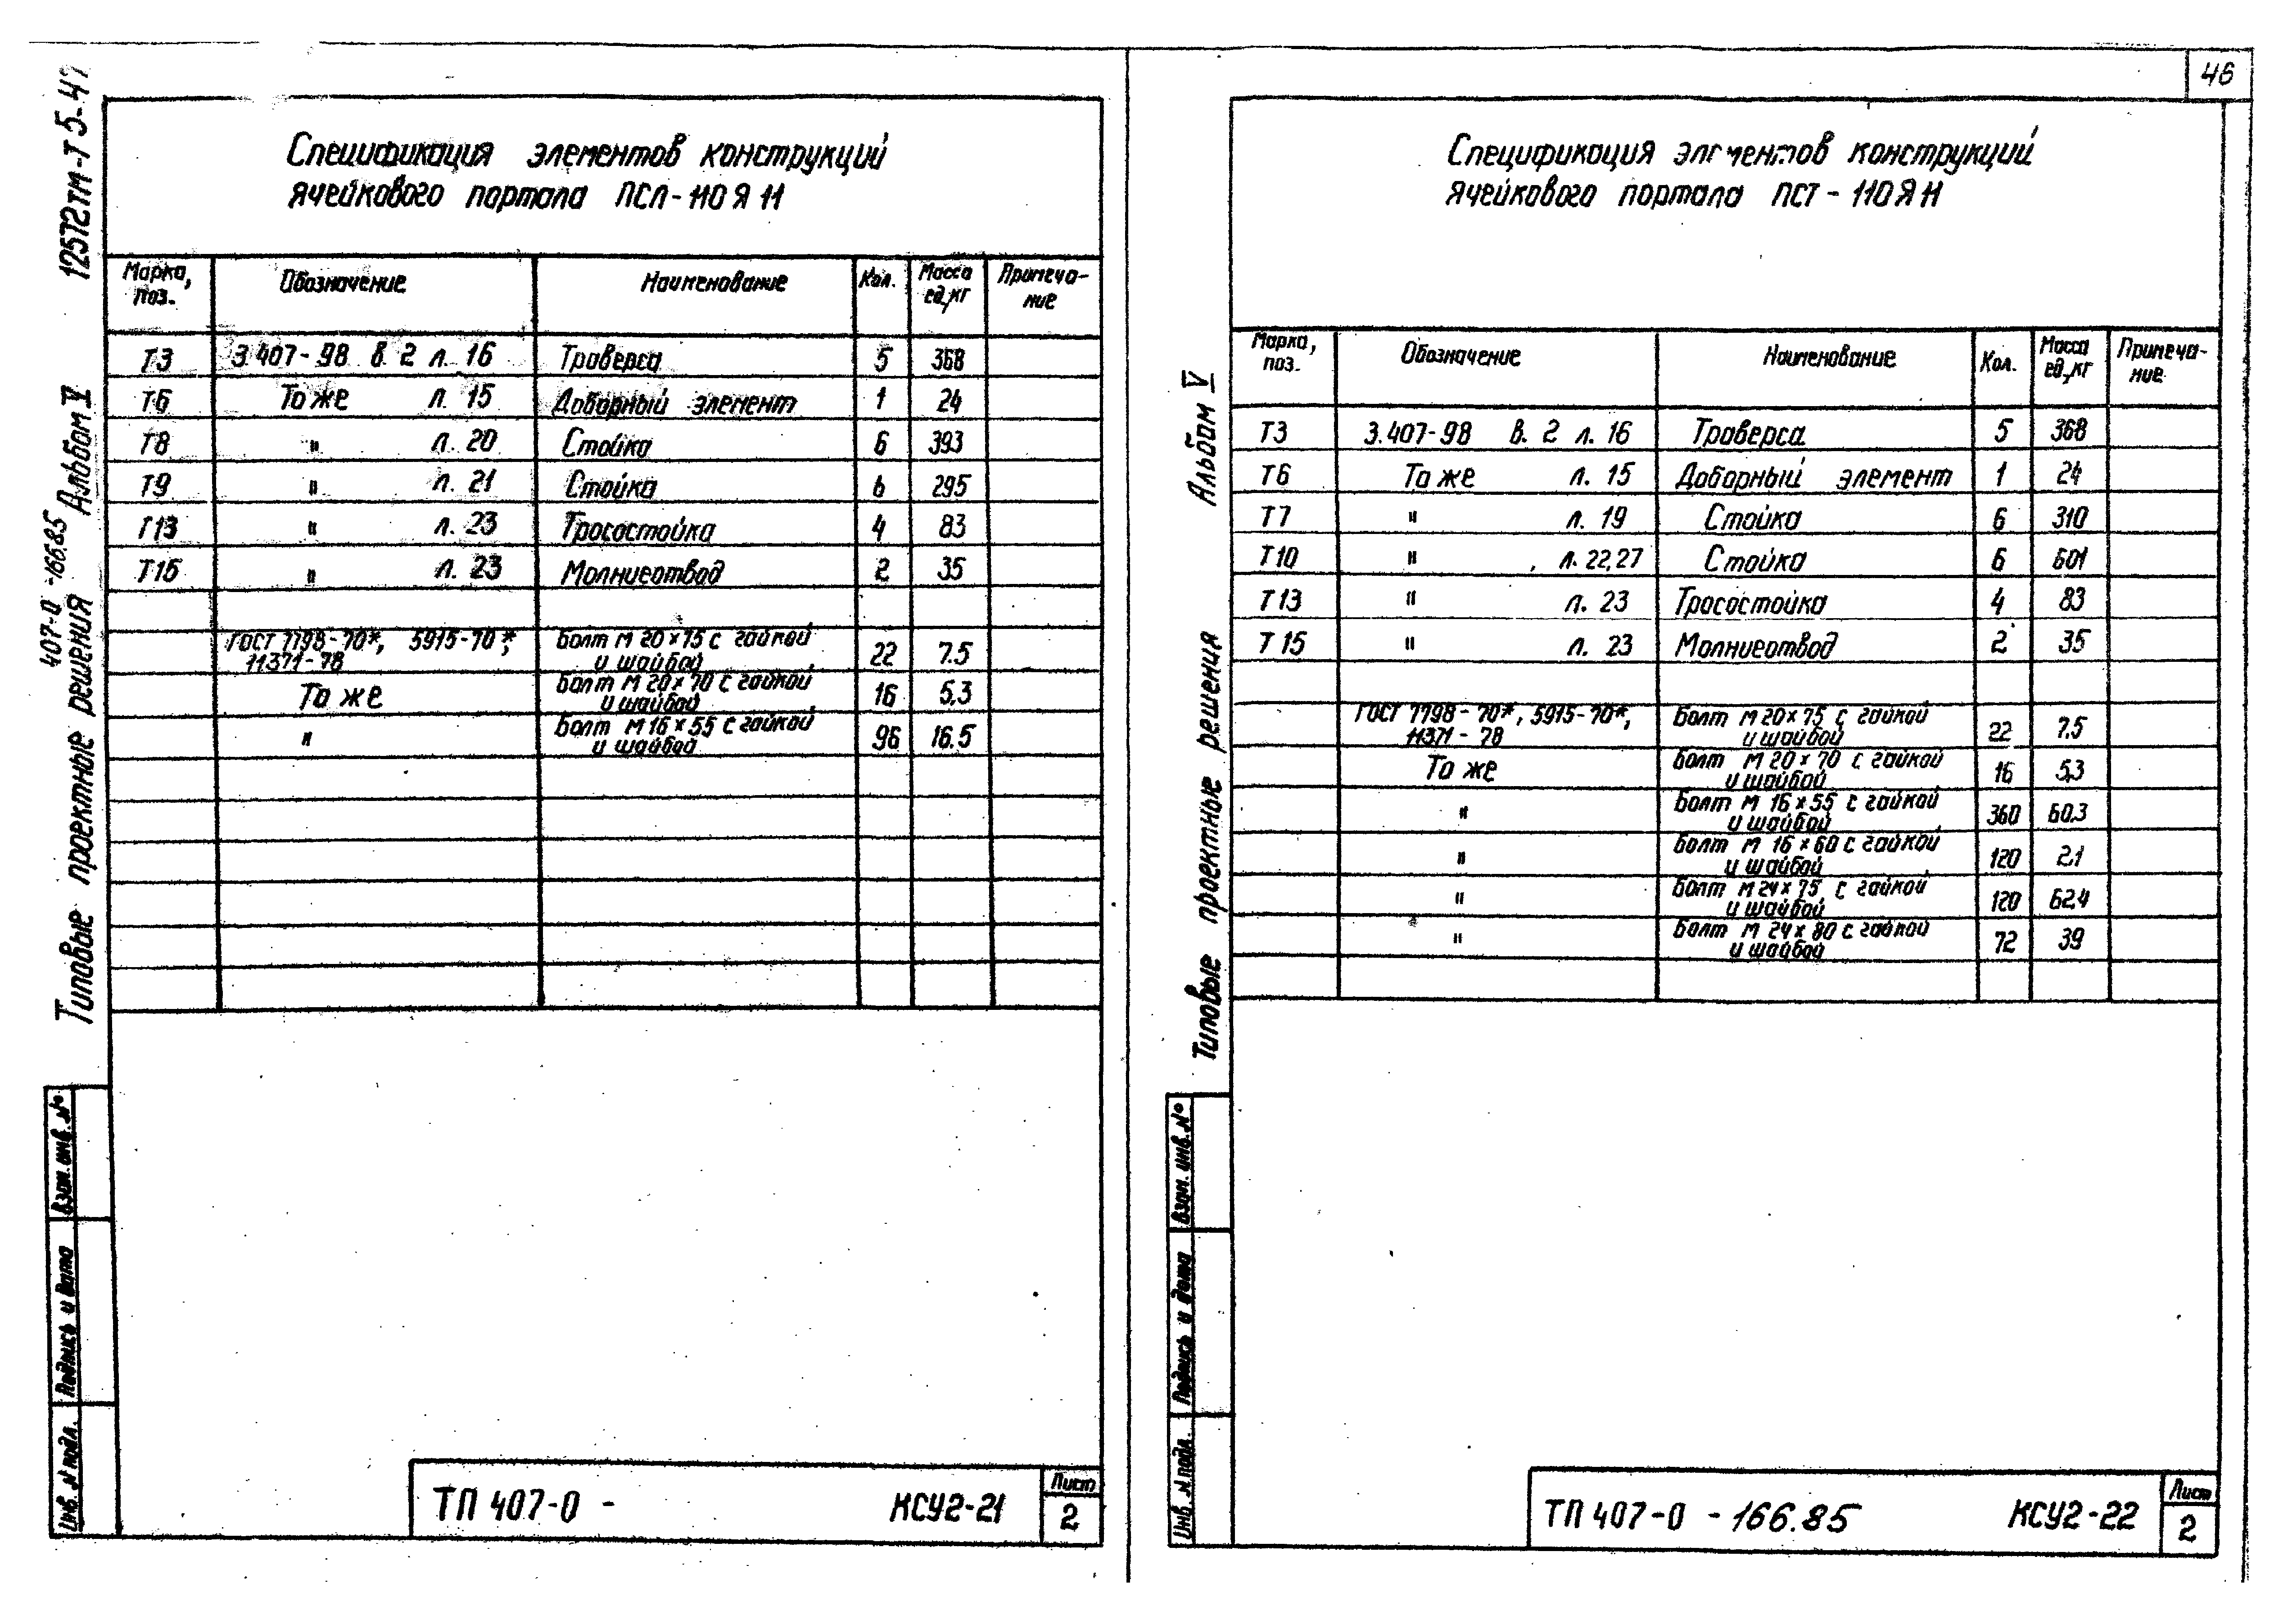 46
12572тм-т5-47
407-0-166.85
Типовые проектные решения Альбом V
Спецификация элементов конструкций
ячейкового портала ПСЛ-110Я11
Марка, поз. Обозначение Наименование Кол. Масса ед,кг Примеча-ние
Т3 3.407-98 в. 2 л. 16 Траверса 5 368
Т6 То же л. 15 Доборный элемент 1 24
Т8 " л. 20 Стойка 6 393
Т9 " л. 21 Стойка 6 295
Т13 " л. 23 Тросостойка 4 83
Т15 " л. 23 Молниеотвод 2 35
ГОСТ 7798-70*, 5915-70*, 11371-78 Болт М 20×75 с гайкой и шайбой 22 7.5
То же Болт М 20×70 с гайкой и шайбой 16 5,3
" Болт М 16×55 с гайкой и шайбой 96 16.5
Инв. N подл. Подпись и дата Взам. инв. №
ТП 407-0 - КСУ2-21 Лист 2
Типовые проектные решения Альбом V
Спецификация элементов конструкций
ячейкового портала ПСТ-110Я11
Марка, поз. Обозначение Наименование Кол. Масса ед,кг Примеча-ние
Т3 3.407-98 в. 2 л. 16 Траверса 5 368
Т6 То же л. 15 Доборный элемент 1 24
Т7 " л. 19 Стойка 6 310
Т10 " л. 22,27 Стойка 6 601
Т13 " л. 23 Тросостойка 4 83
Т15 " л. 23 Молниеотвод 2 35
ГОСТ 7798-70*, 5915-70*, 11371-78 Болт М 20×75 с гайкой и шайбой 22 7.5
То же Болт М 20×70 с гайкой и шайбой 16 5,3
" Болт М 16×55 с гайкой и шайбой 360 60.3
" Болт М 16×60 с гайкой и шайбой 120 2.1
" Болт М 24×75 с гайкой и шайбой 120 62.4
" Болт М 24×80 с гайкой и шайбой 72 39
Инв. N подл. Подпись и дата Взам. инв. №
ТП 407-0 -166.85 КСУ2-22 Лист 2